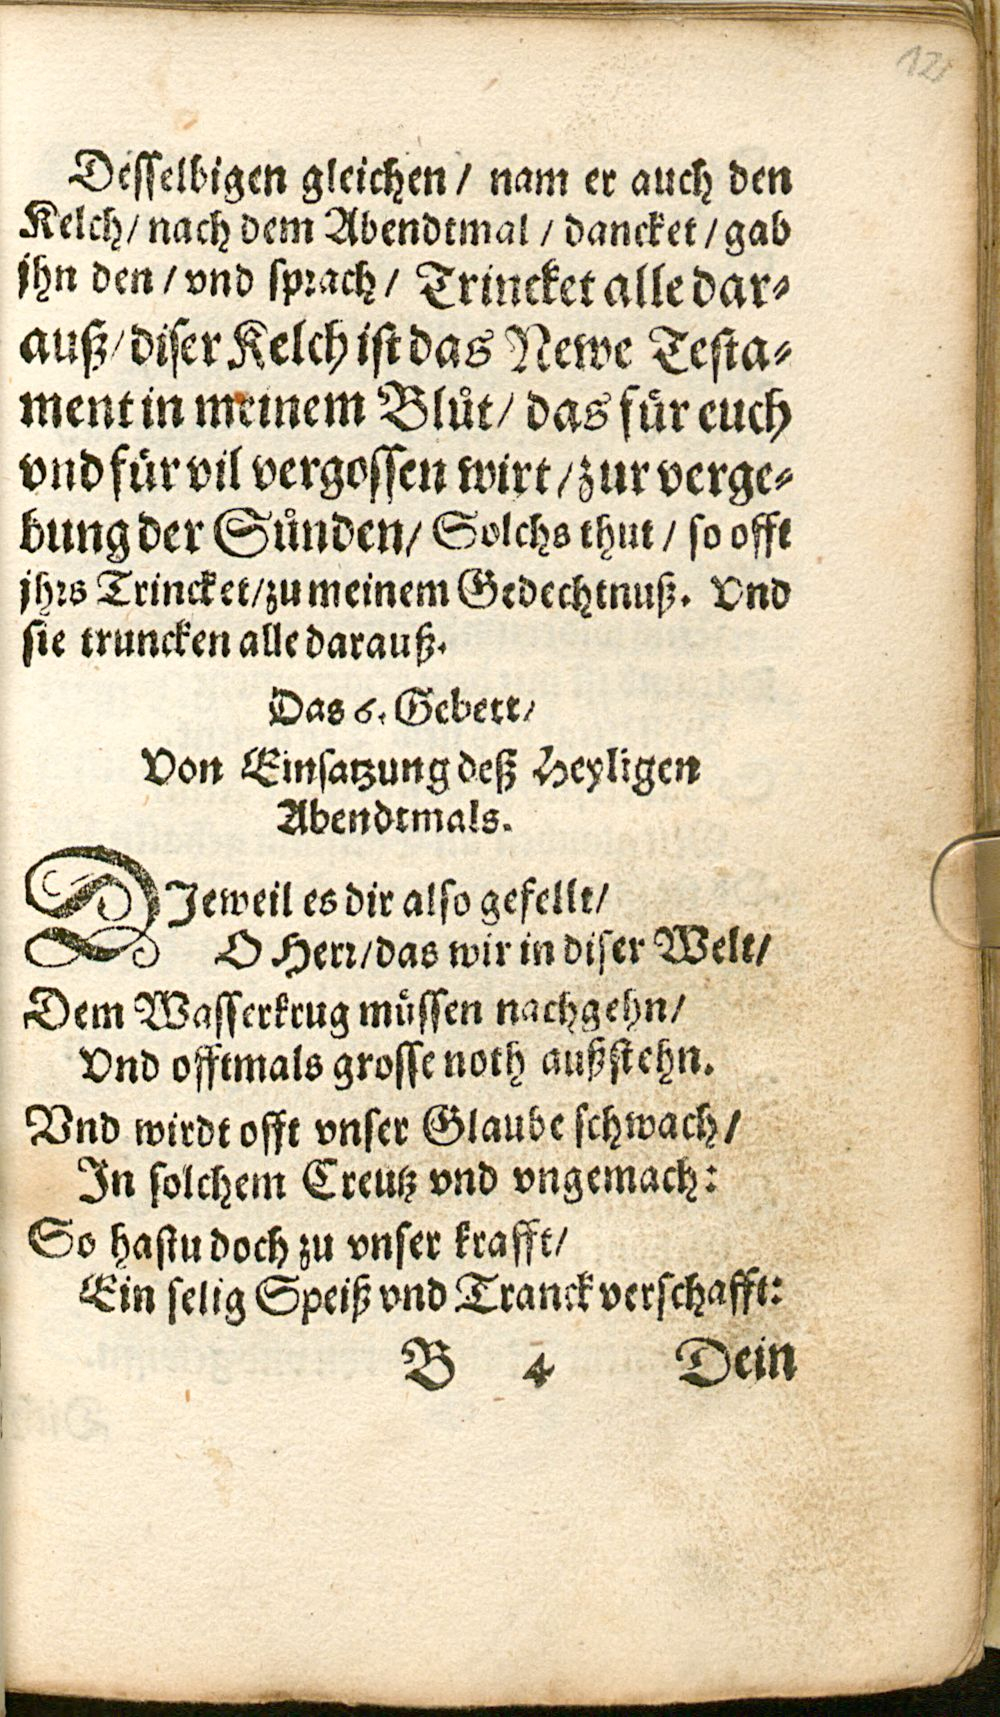 12
Desselbigen gleichen / nam er auch den
Kelch / nach dem Abendtmal / dancket / gab
jhn den / vnd sprach / Trincket alle dar⸗
auß / diser Kelch ist das Newe Testa⸗
ment in meinem Blůt / das für euch
vnd für vil vergossen wirt / zur verge⸗
bung der Sünden / Solchs thut / so offt
jhrs Trincket / zu meinem Gedechtnuß. Vnd
sie truncken alle darauß.
Das 6. Gebett /
Von Einsatzung deß Heyligen
Abendtmals.
DJeweil es dir also gefellt /
O Herr / das wir in diser Welt /
Dem Wasserkrug müssen nachgehn /
Vnd offtmals grosse noth außstehn.
Vnd wirdt offt vnser Glaube schwach /
In solchem Creutz vnd vngemach:
So hastu doch zu vnser krafft /
Ein selig Speiß vnd Tranck verschafft:
B 4 Dein